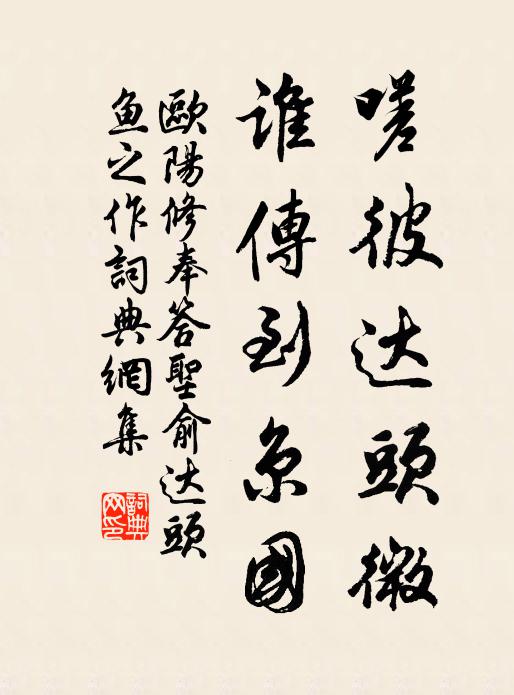 嗟彼达頭微
誰傳到京國
歐陽修奉答聖俞达頭
魚之作詞典網集
詞典
网印